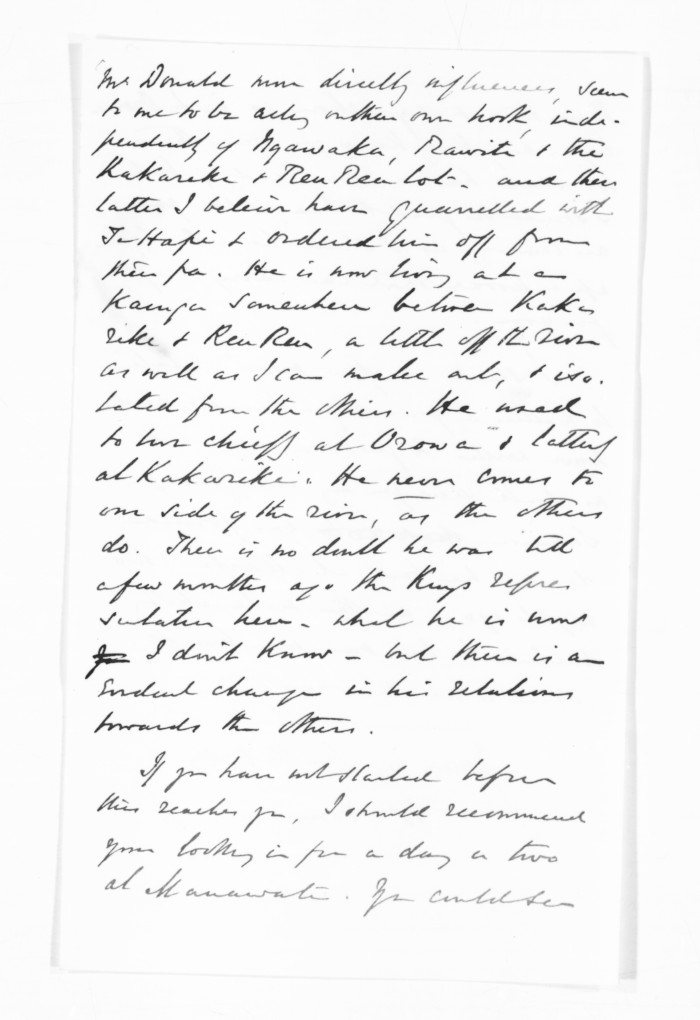 McDonald more directly influences, seem
to me to be acting on their own hook, inde-
pendently of Ngawaka, Rawiti & the
Kakariki & Reu Reu lot - and these
latter I believe have quarrelled with
Te Hapi & ordered him off from
their pa. He is now living at a
Kainga somewhere between Kaka
riki & Reu Reu, a little off the river
as well as I can make out, & iso-
lated from the others. He used
to live chiefly at Oroua & latterly
at Kakariki. He never comes to
our side of the river, as the others
do. There is no doubt he was till
a few months ago the Kings repre
sentative here - what he is now
I don't know - but there is an
evident change in his relations
towards the others.
If you have not started before
this reaches you, I should recommend
your looking in for a day or two
at Manawatu. You could see